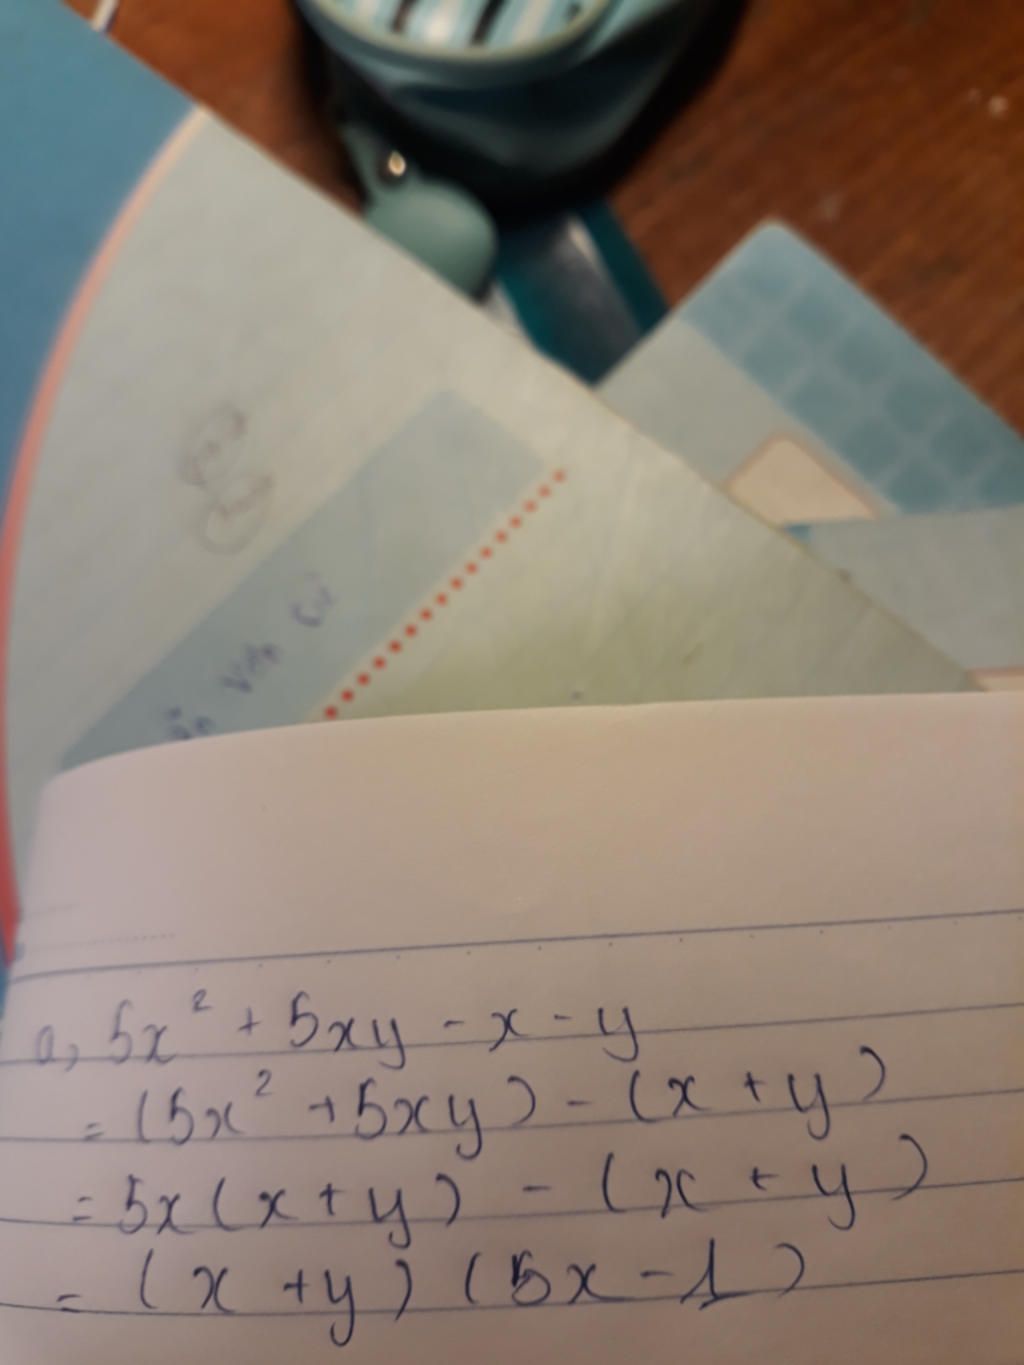 a, 5x² + 5xy - x - y
= (5x² + 5xy) - (x + y)
= 5x(x + y) - (x + y)
= (x + y) (5x - 1)